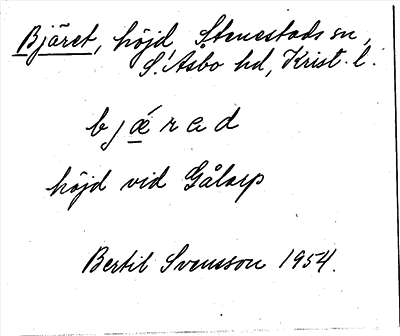 Bjäret, höjd, Stenestads sn,
S. Åsbo hd, Krist. l.
bjǽrad
höjd vid Gålarp
Bertil Svensson 1954.